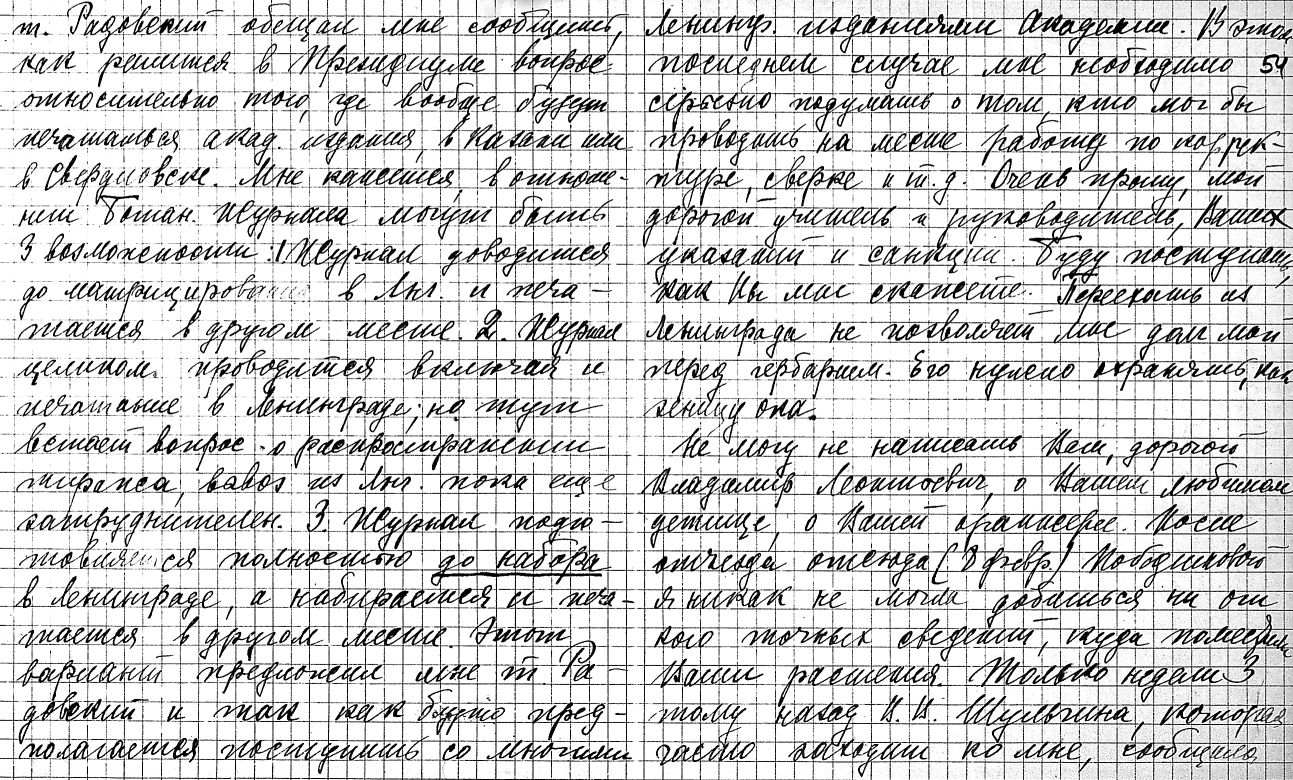 т. Радовский обещал мне сообщить,
как решится в Президиуме вопрос
относительно того, где вообще будут
печататься акад. издания, в Казани или
в Свердловске. Мне кажется, в отноше-
нии Ботан. Журнала могут быть
3 возможности: 1 Журнал доводится
до матрицирования в Лнг. и печа-
тается в другом месте. 2. Журнал
целиком проводится включая и
печатание в Ленинграде; но тут
встает вопрос о распространении
тиража, вывоз из Лнг. пока еще
затруднителен. 3. Журнал подго-
товляется полностью до набора
в Ленинграде, а набирается и печа-
тается в другом месте. Этот
вариант предложил мне т. Ра-
довский и так как будто пред-
полагается поступить со многими
Ленингр. изданиями Академии. В этом
последнем случае мне необходимо 54
серьезно подумать о том, кто мог бы
проводить на месте работу по коррек-
туре, сверке и т.д. Очень прошу, мой
дорогой учитель и руководитель, Ваших
указаний и санкции. Буду поступать,
как Вы мне скажете. Переехать из
Ленинграда не позволяет мне долг мой
перед гербарием. Его нужно охранять, как
зеницу ока.
Не могу не написать Вам, дорогой
Владимир Леонтьевич, о Вашем любимом
детище, о Вашей оранжерее. После
отъезда отсюда (8 февр.)
я никак не могла добиться ни от
кого точных сведений, куда поместили
Ваши растения. Только недели 3
тому назад Н. И. Шульгина, которая
часто заходит ко мне, сообщила